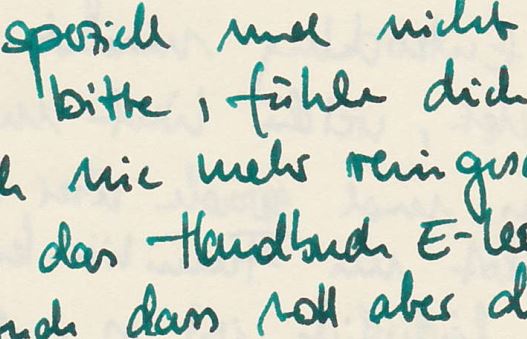 speziell und nicht
bitte, fühle dich
h nie mehr reinges
das Handbuch E-les
dass soll aber d